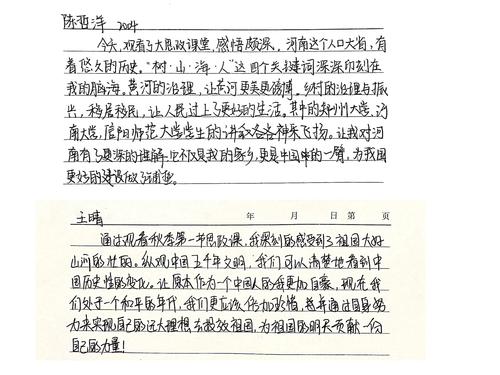 陈哲洋 2004
今天,观看了大思政课堂,感悟颇深。河南这个人口大省,有
着悠久的历史。“树·山·海·人”这四个关键词深深印刻在
我的脑海。黄河的治理,让黄河更美更清博。乡村的治理与振
兴,移居移民,让人民过上了更好的生活。其中的郑州大学,河
南大学,信阳师范大学学生的讲叙各各神采飞扬。让我对河
南有了更深的理解,它不仅是我的家乡,更是中国中的一臂,为我国
更好的建设做了铺垫。
王晴 年 月 日 第 页
通过观看秋季第一节思政课,我深刻的感受到了祖国大好
山河的壮丽。纵观中国五千年文明,我们可以清楚地看到中
国历史性的变化。让原本作为一个中国人的我更加自豪,现在我
们处于一个和平的年代,我们更应该倍加珍惜,并通过自身努
力来实现自己的远大理想去报效祖国,为祖国的明天贡献一份
自己的力量!